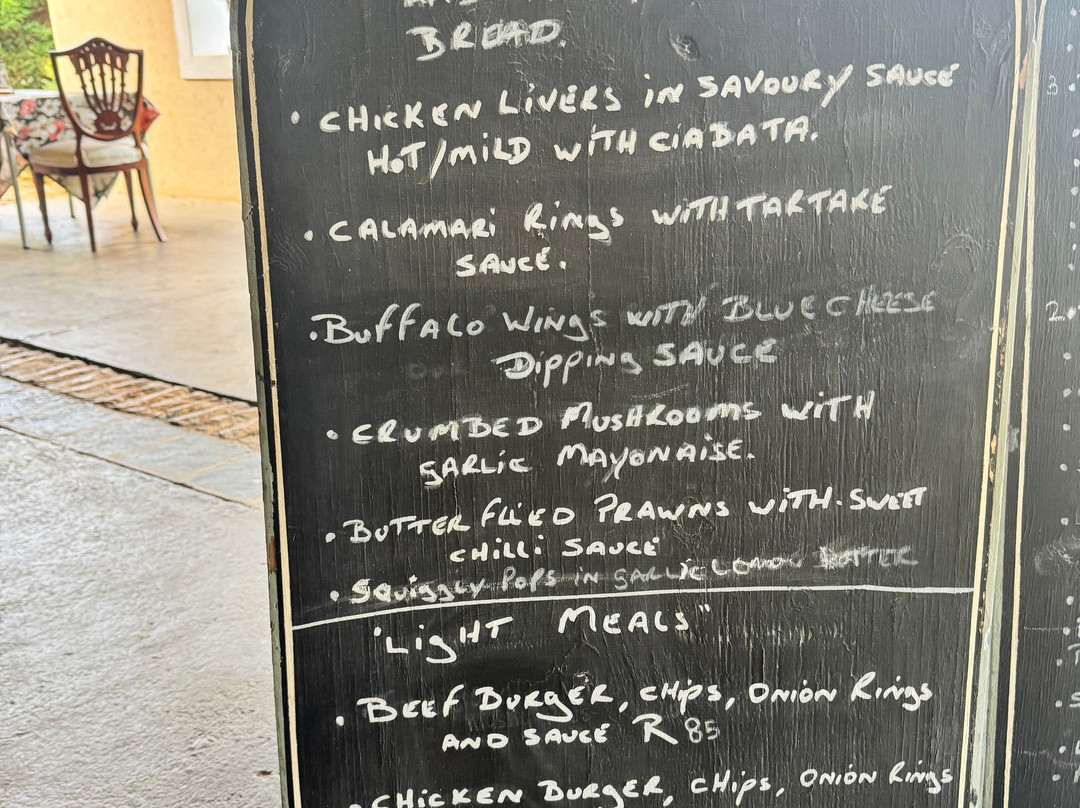 BREAD.
• CHICKEN LIVERS IN SAVOURY SAUCE
HOT/MILD WITH CIABATA.
• CALAMARI RINGS WITH TARTARE
SAUCE.
• BUFFALO WINGS WITH BLUE CHEESE
DIPPING SAUCE
• CRUMBED MUSHROOMS WITH
GARLIC MAYONAISE.
• BUTTER FLIED PRAWNS WITH SWEET
CHILLI SAUCE
• SQUIGGLY POPS IN GARLIC LEMON BUTTER
"LIGHT MEALS"
• BEEF BURGER, CHIPS, ONION RINGS
AND SAUCE R85
• CHICKEN BURGER, CHIPS, ONION RINGS